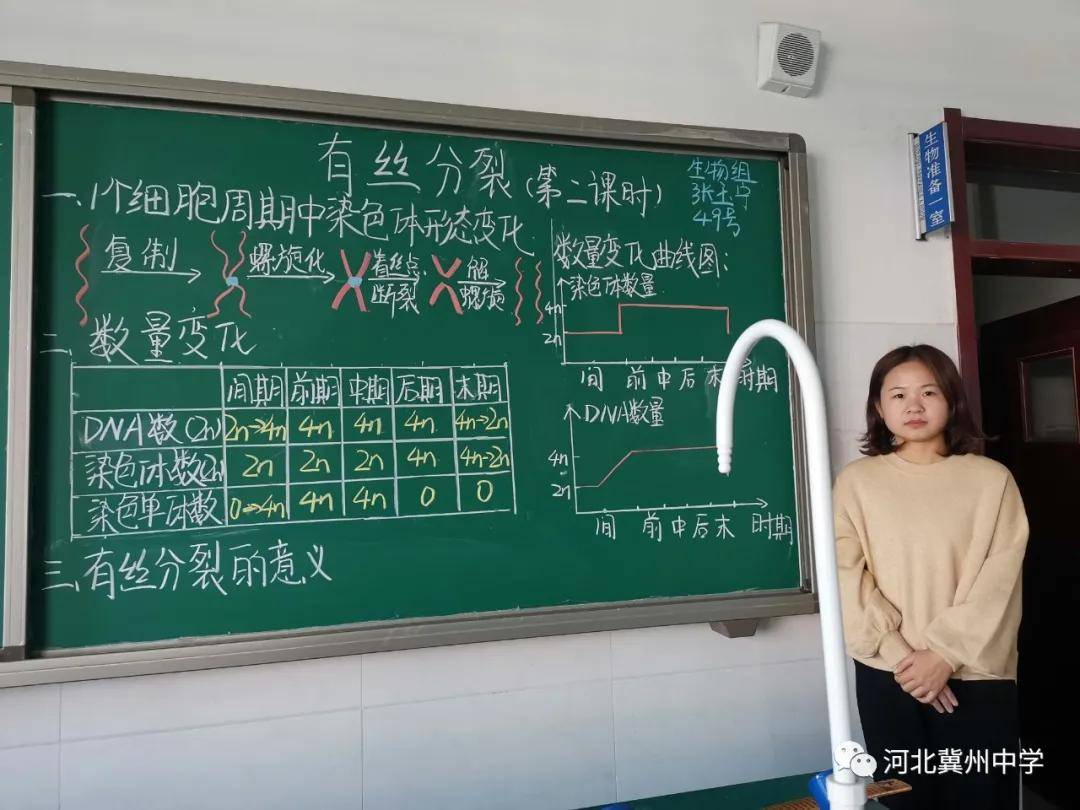 有丝分裂(第二课时)
生物组
张玉宁
49号
一、1个细胞周期中染色体形态变化
复制
螺旋化
着丝点
断裂
解
螺旋
二、数量变化
间期 前期 中期 后期 末期
DNA数(2n) 2n→4n 4n 4n 4n 4n→2n
染色体数(2n) 2n 2n 2n 4n 4n→2n
染色单体数 0→4n 4n 4n 0 0
三、有丝分裂的意义
数量变化曲线图:
染色体数量
4n
2n
间 前 中 后 末 时期
DNA数量
4n
2n
间 前 中 后 末 时期
生物准备一室
河北冀州中学